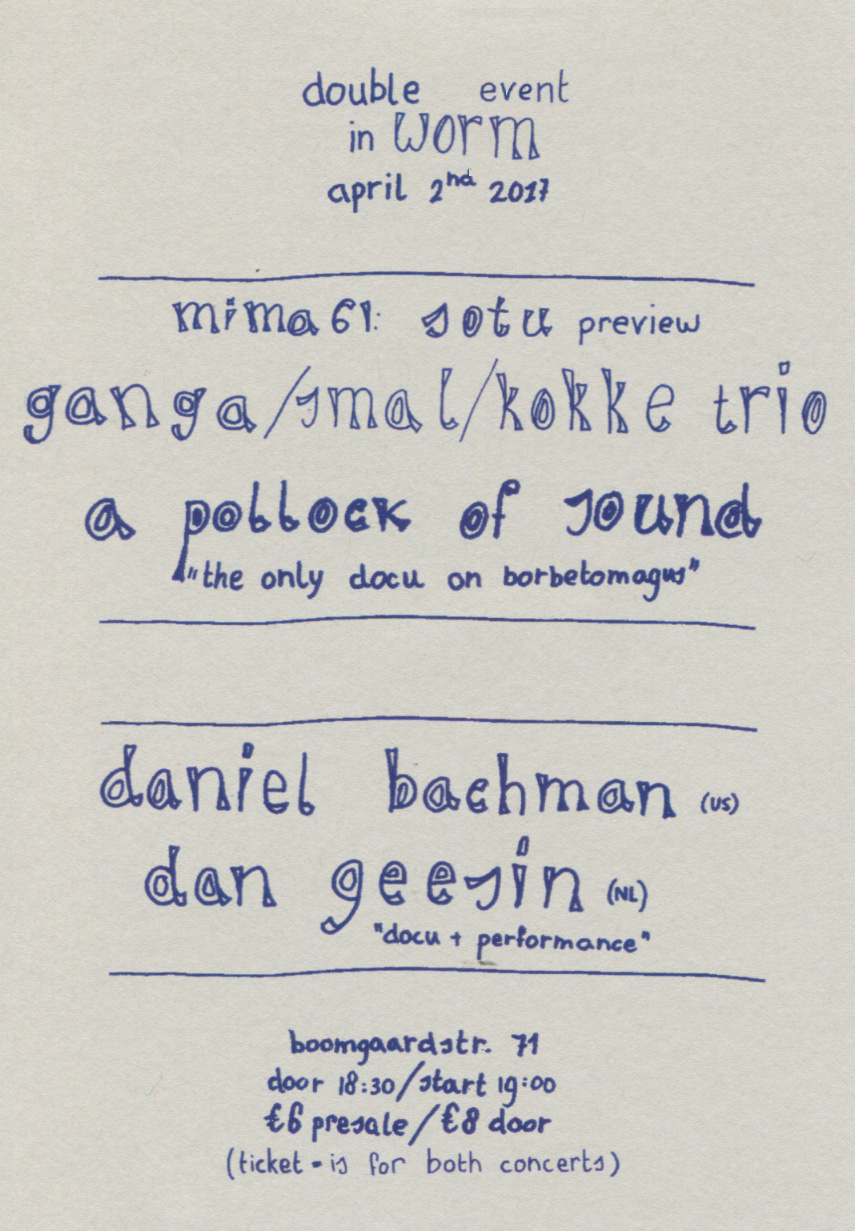 double event
in worm
april 2nd 2017
mima61: sotu preview
ganga/smal/kokke trio
a pollock of sound
"the only docu on borbetomagus"
daniel bachman (US)
dan geesin (NL)
"docu + performance"
boomgaardstr. 71
door 18:30/start 19:00
€6 presale/€8 door
(ticket - is for both concerts)